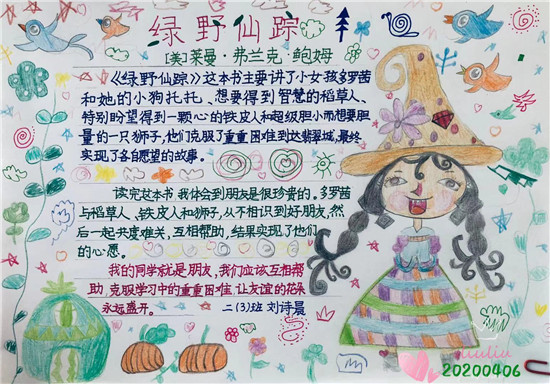 绿野仙踪
[美]莱曼·弗兰克·鲍姆
《绿野仙踪》这本书主要讲了小女孩多罗茜
和她的小狗托托、想要得到智慧的稻草人、
特别盼望得到一颗心的铁皮人和超级胆小而想要胆
量的一只狮子,他们克服了重重困难到达翡翠城,最终
实现了各自愿望的故事。
读完这本书,我体会到朋友是很珍贵的。多罗茜
与稻草人、铁皮人和狮子,从不相识到好朋友,然
后一起共度难关,互相帮助,结果实现了他们
的心愿。
我的同学就是朋友,我们应该互相帮
助,克服学习中的重重困难,让友谊的花朵
永远盛开。
二(3)班 刘诗晨
20200406